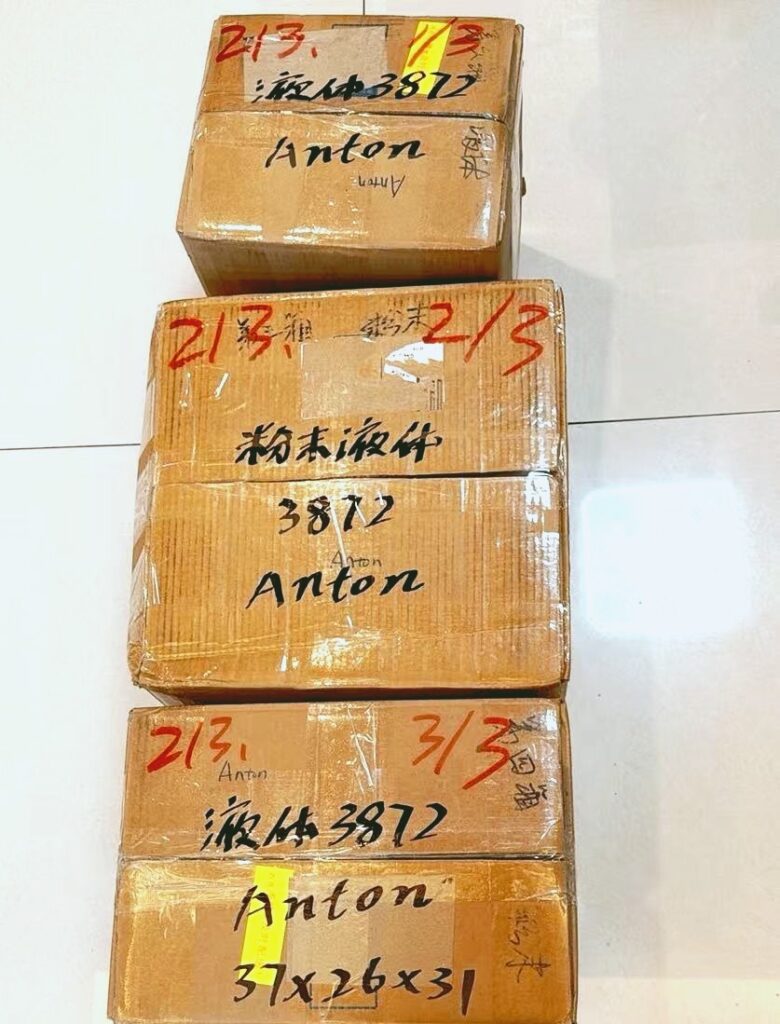 213. 1/3
液体3872
Anton
Anton
213. 2/3
粉末
粉末液体
3872
Anton
Anton
213. 3/3
Anton
液体3872
Anton
37x26x31
粉末